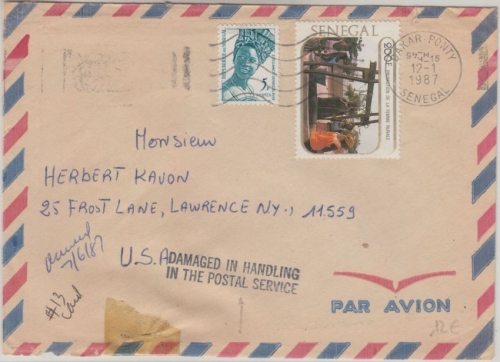 SENEGAL
5F
DAKAR-PONTY
12-1
1987
SENEGAL
Monsieur
HERBERT KAVON
25 FROST LANE, LAWRENCE NY., 11.559
U.S.A
DAMAGED IN HANDLING
IN THE POSTAL SERVICE
7/6/87
#13
Card
PAR AVION
12€